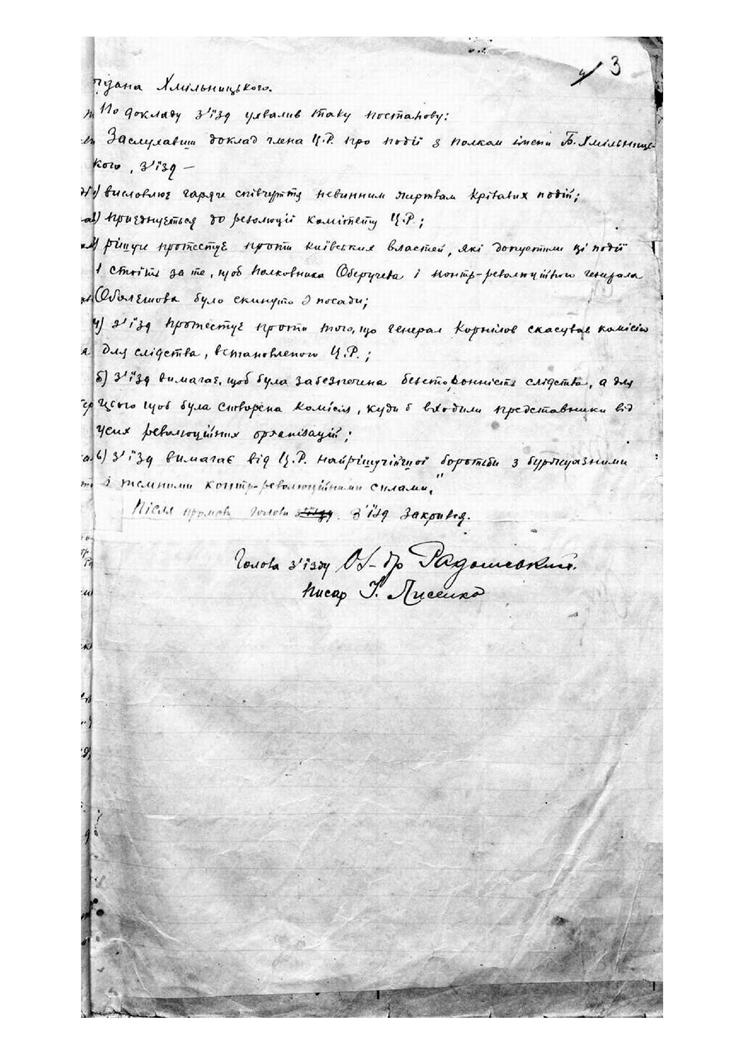 3
гдана Хмільницького.
По докладу з'їзд ухвалив таку постанову:
Заслухавши доклад члена Ц.Р. про події з полкам імени Б. Хмільниць-
кого, з'їзд —
1) висловлює гаряче співчуття невинним жертвам крівавих подій;
2) приєднується до резолюції комітету Ц.Р.;
3) рішуче протестує проти київських властей, які допустили ці події
і стоїть за те, щоб полковника Оберучева і контр-революційного генерала
Оболєшова було скинуто з посади;
4) з'їзд протестує проти того, що генерал Корнілов скасував комісію
для слідства, встановленого Ц.Р.;
5) з'їзд вимагає, щоб була забезпечена безсторонність слідства, а для
цього щоб була створена комісія, куди б входили представники від
усіх революційних організацій;
6) з'їзд вимагає від Ц.Р. найрішучійшої боротьби з буржуазними
і темними контр-революційними силами."
Після промови голови з'їзд закрився.
Голова з'їзду Радомський.
Писар І. Лисенко